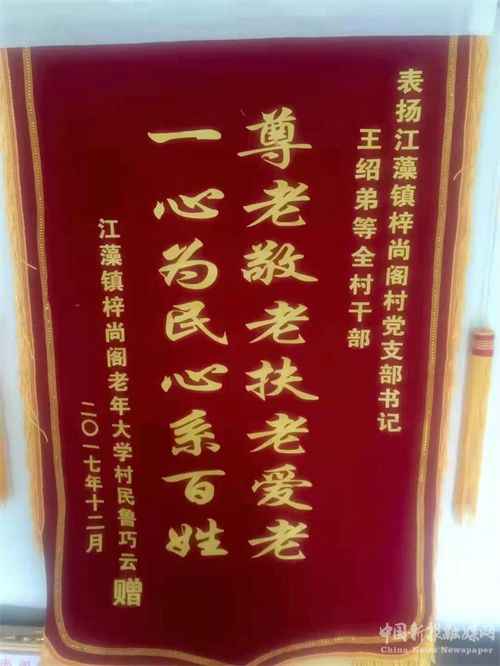 表扬江藻镇梓尚阁村党支部书记
王绍弟等全村干部
尊老敬老扶老爱老
一心为民心系百姓
江藻镇梓尚阁老年大学村民鲁巧云赠
二〇一七年十二月
中国新报融媒网
China News Newspaper